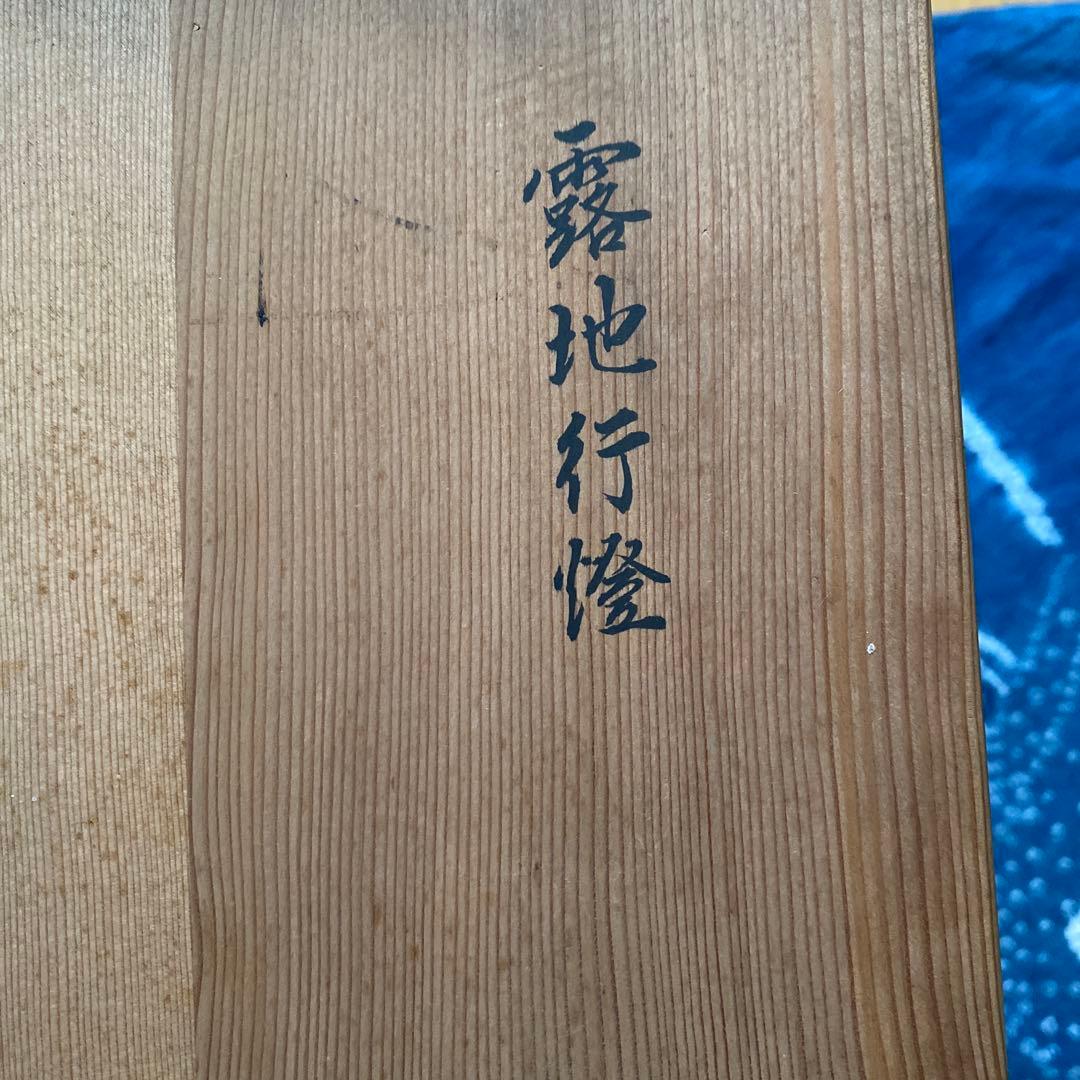 露地行燈